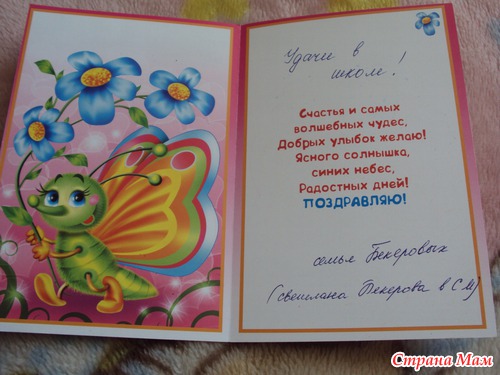 Удачи в
школе!
Счастья и самых
волшебных чудес,
Добрых улыбок желаю!
Ясного солнышка,
синих небес,
Радостных дней!
ПОЗДРАВЛЯЮ!
семья Бекеровых
(светлана Бекерова в СМ)
Страна Мам